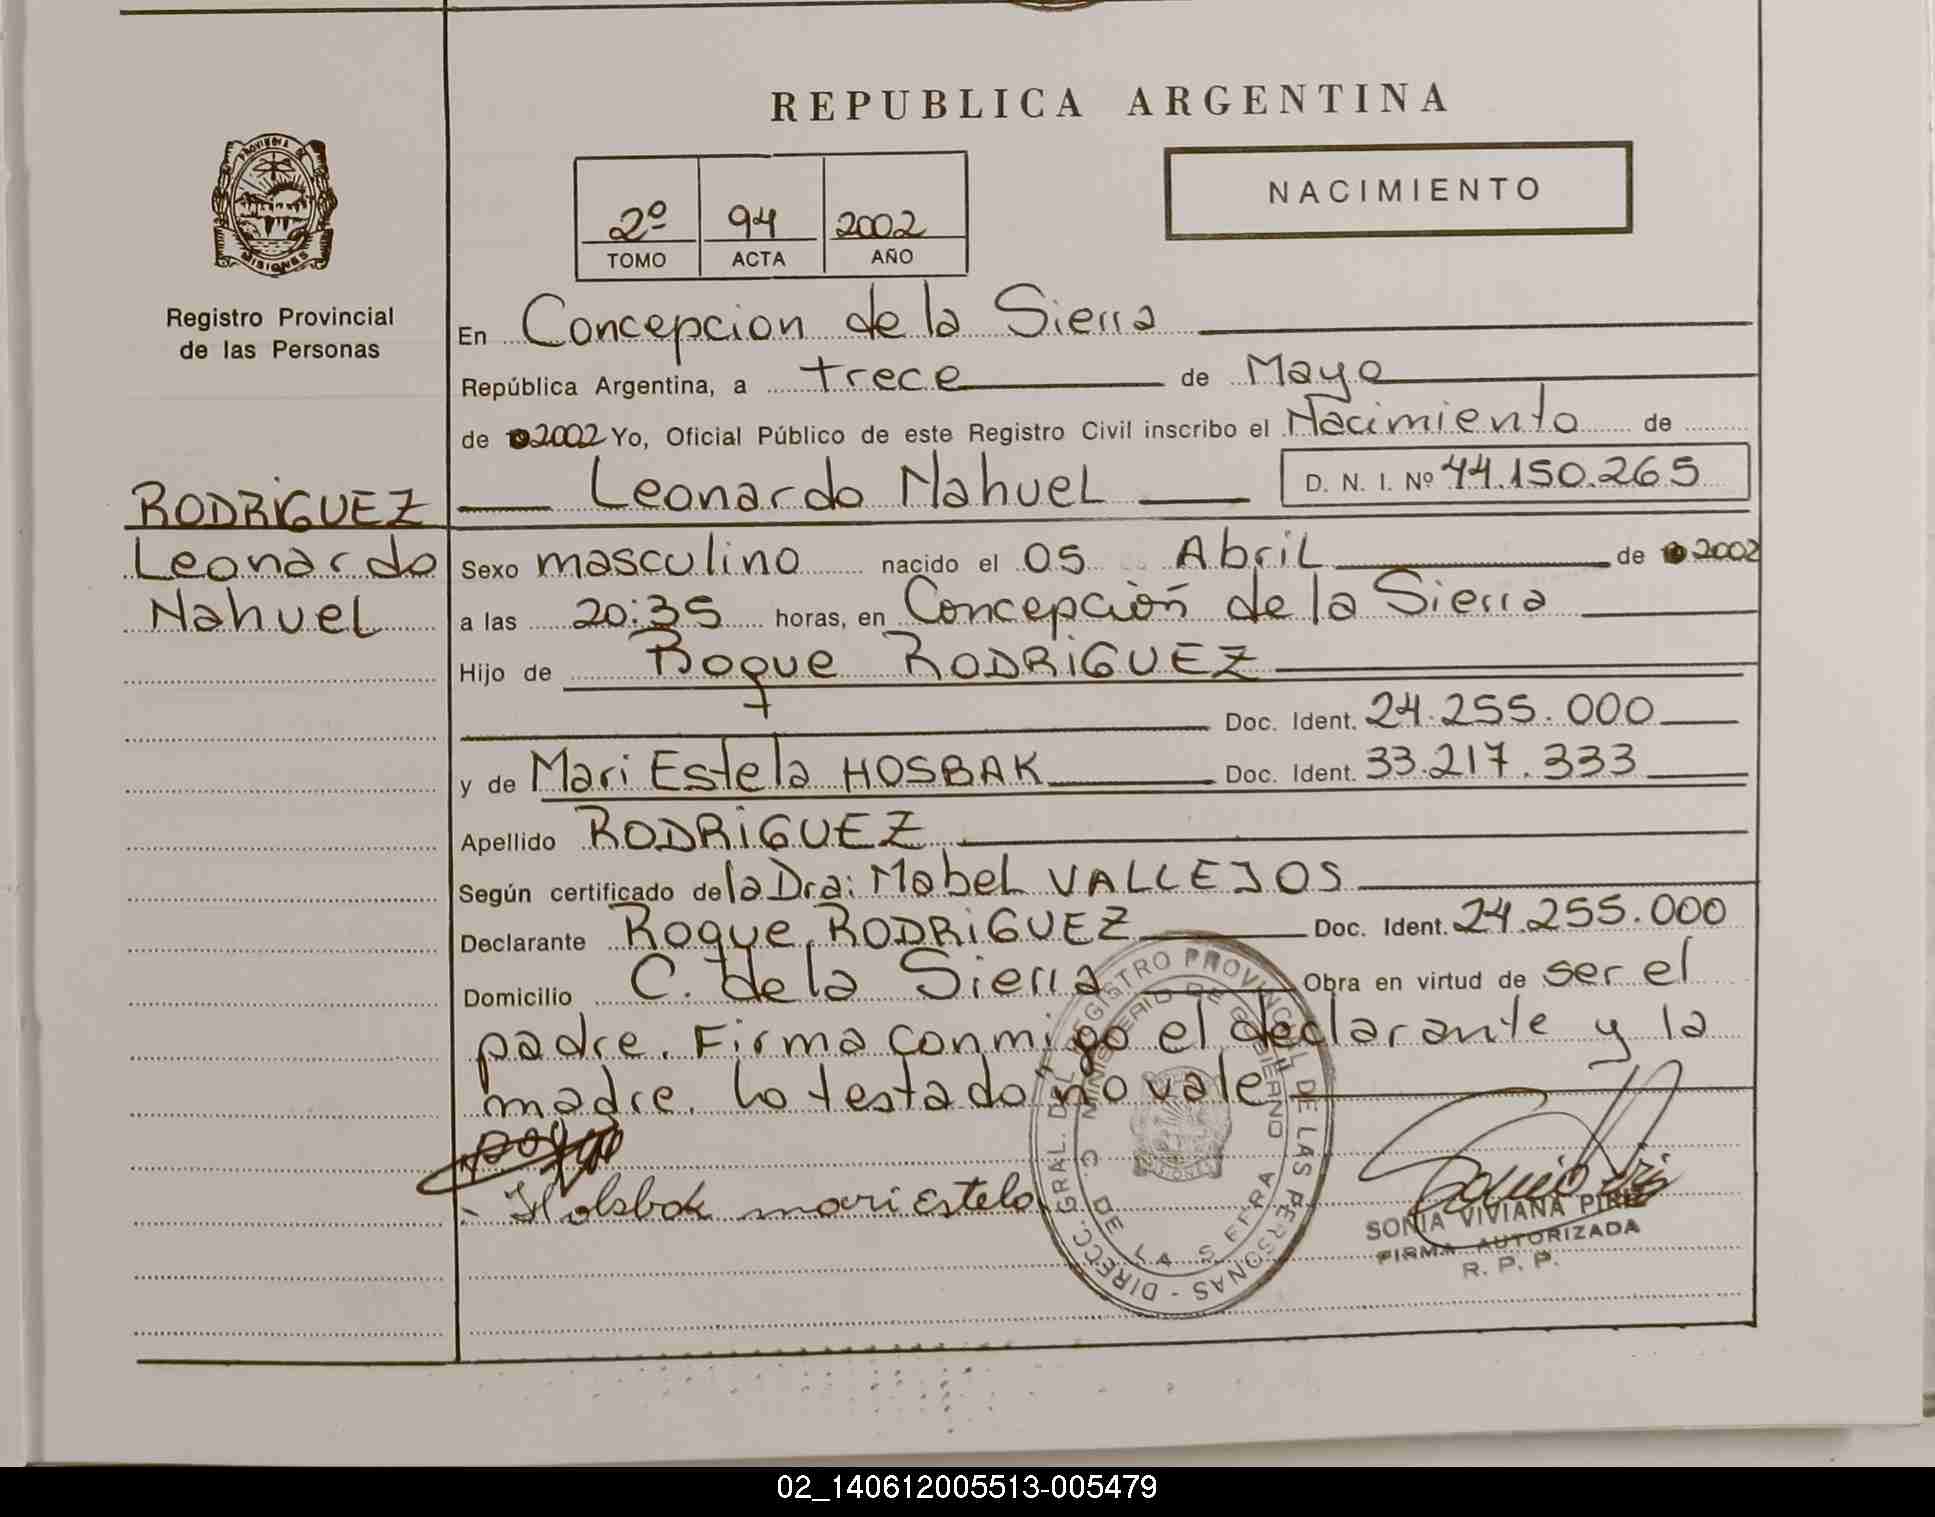 REPUBLICA ARGENTINA
PROVINCIA DE
MISIONES
Registro Provincial
de las Personas
NACIMIENTO
2º 94 2002
TOMO ACTA AÑO
En Concepcion de la Sierra
República Argentina, a trece de Mayo
de 2002 Yo, Oficial Público de este Registro Civil inscribo el Nacimiento de
Leonardo Nahuel D. N. I. Nº 44.150.265
RODRIGUEZ
Leonardo
Nahuel
Sexo masculino nacido el 05 Abril de 2002
a las 20:35 horas, en Concepción de la Sierra
Hijo de Roque RODRIGUEZ
Doc. Ident. 24.255.000
y de Mari Estela HOSBAK Doc. Ident. 33.217.333
Apellido RODRIGUEZ
Según certificado de la Dra: Mabel VALLEJOS
Declarante Roque RODRIGUEZ Doc. Ident. 24.255.000
Domicilio C. de la Sierra Obra en virtud de ser el
padre. Firma conmigo el declarante y la
madre. Lo testado no vale
Holsbak mari Estela
DIRECC. GRAL. DEL REGISTRO PROVINCIAL DE LAS PERSONAS -
MINISTERIO DE GOBIERNO
C. DE LA SIERRA
SONIA VIVIANA PIRIZ
FIRMA AUTORIZADA
R. P. P.
02_140612005513-005479